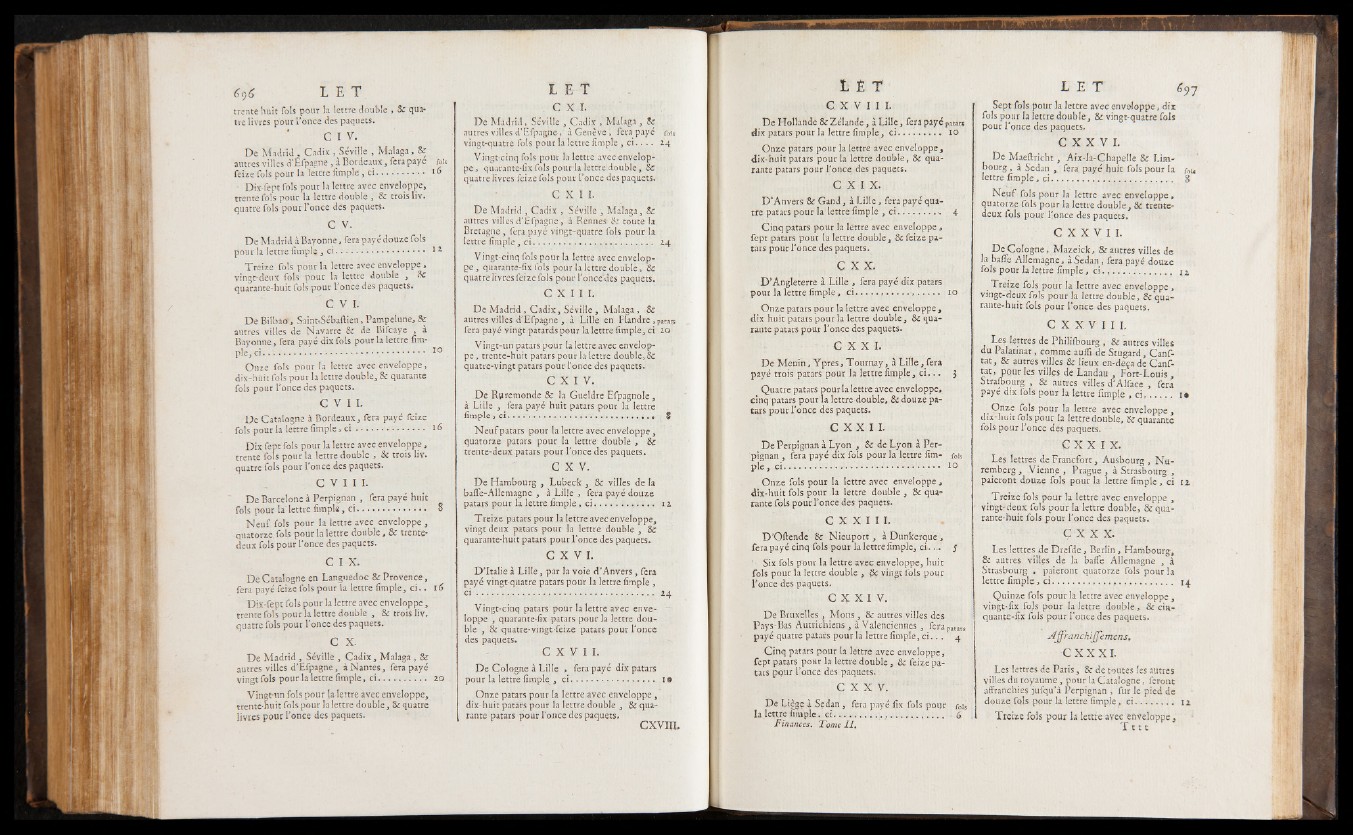 696 L E T
trente-huit ſols pour la lettre double , & qua-
tre livres pour l'once des paquets.
C I V.
De Madrid , Cadix , Séville , Malaga , &
autres villes d'Eſpagne , à Bordeaux , ſera payé ſols
ſeize ſols pour la lettre ſimple , ci........... 16
Dix-ſept ſols pour la lettre avec enveloppe,
trente ſols pour la lettre double , & trois liv.
quatre ſols pour l'once des paquets.
C V.
De Madrid à Bayonne , ſera payé douze ſols
pour la lettre ſimple , ci................ 12
Treize ſols pour la lettre avec enveloppe ,
vingt-deux ſols pour la lettre double , &
quarante-huit ſols pour l'once des paquets.
C V I.
De Bilbao , Saint-Sébaſtien , Pampelune, &
autres villes de Navarre & de Biſcaye , à
Bayonne , ſera payé dix ſols pour la lettre ſim-
ple , ci............................ 10
Onze ſols pour la lettre avec enveloppe ,
dix-huit ſols pour la lettre double, & quarante
ſols pour l'once des paquets.
C V I I.
De Catalogne à Bordeaux , ſera payé ſeize
ſols pour la lettre ſimple , ci.............. 16
Dix ſept ſols pour la lettre avec enveloppe ,
trente ſols pour la lettre double , & trois liv.
quatre ſols pour l'once des paquets.
C V I I I.
De Barcelone à Perpignan , ſera payé huit
ſols pour la lettre ſimple , ci............. 8
Neuf ſols pour la lettre avec enveloppe ,
quatorze ſols pour la lettre double , & trente-
deux ſols pour l'once des paquets.
C I X.
De Catalogne en Languedoc & Provence ,
ſera payé ſeize ſols pour la lettre ſimple, ci.. 16
Dix-ſept ſols pour la lettre avec enveloppe ,
trente ſols pour la lettre double , & trois liv.
quatre ſols pour l'once des paquets.
C X.
De Madrid , Séville , Cadix , Malaga , &
autres villes d'Eſpagne , à Nantes , ſera payé
vingt ſols pour la lettre ſimple, ci.......... 20
Vingt-un ſols pour la lettre avec enveloppe,
trente-huit ſols pour la lettre double , & quatre
livres pour l'once des paquets.
L E T
C X I.
De Madrid, Séville , Cadix , Malaga , &
autres villes d'Eſpagne , à Genève , ſera payé ſols
vingt-quatre ſols pour la lettre ſimple , ci.... 24
Vingt-cinq ſols pour la lettre avec envelop-
pe , quarante-ſix ſols pour la lettre double , &
quatre livres ſeize ſols pour l'once des paquets.
C X I I.
De Madrid , Cadix , Séville , Malaga , &
autres villes d'Eſpagne , à Rennes & toute la
Bretagne , ſera payé vingt-quatre ſols pour la
lettre ſimple , ci...................... 24
Vingt-cinq ſols pour la lettre avec envelop-
pe , quarante-ſix ſols pour la lettre double , &
quatre livres ſeize ſols pour l'once des paquets.
C X I I I.
De Madrid , Cadix , Séville , Malaga , &
autres villes d'Eſpagne , à Lille en Flandre , patars
ſera payé vingt patards pour la lettre ſimple, ci 20
Vingt-un patars pour la lettre avec envelop-
pe , trente-huit patars pour la lettre double, &
quatre-vingt patars pour l'once des paquets.
C X I V.
De Ruremonde & la Gueldre Eſpagnole ,
à Lille , ſera payé huit patars pour la lettre
ſimple , ci........................... 8
Neuf patars pour la lettre avec enveloppe ,
quatorze patars pour la lettre double , &
trente-deux patars pour l'once des paquets.
C X V.
De Hambourg , Lubeck , & villes de la
baſſe-Allemagne , à Lille , ſera payé douze
patars pour la lettre ſimple , ci............ 12
Treize patars pour la lettre avec enveloppe,
vingt deux patars pour la lettre double , &
quarante-huit patars pour l'once des paquets.
C X V I.
D'Italie à Lille , par la voie d'Anvers , ſera
payé vingt-quatre patars pour la lettre ſimple ,
ci................................. 24
Vingt-cinq patars pour la lettre avec enve-
loppe , quarante-ſix patars pour la lettre dou-
ble , & quatre-vingt-ſeize patars pour l'once
des paquets.
C X V I I.
De Cologne à Lille , ſera payé dix patars
pour la lettre ſimple , ci................ 10
Onze patars pour la lettre avec enveloppe ,
dix huit patars pour la lettre double , & qua-
rante patars pour l'once des paquets.
CXVIII.
L E T
C X V I I I.
De Hollande & Zélande , à Lille , ſera payé patars
dix patars pour la lettre ſimple, ci......... 10
Onze patars pour la lettre avec enveloppe,
dix-huit patars pour la lettre double, & qua-
rante patars pour l'once des paquets.
C X I X.
D'Anvers & Gand , à Lille , ſera payé qua-
tre patars pour la lettre ſimple , ci......... 4
Cinq patars pour la lettre avec enveloppe ,
ſept patars pour la lettre double , & ſeize pa-
tars pour l'once des paquets.
C X X.
D'Angleterre à Lille , ſera payé dix patars
pour la lettre ſimple , ci................ 10
Onze patars pour la lettre avec enveloppe ,
dix huit patars pour la lettre double , & qua-
rante patars pour l'once des paquets.
C X X I.
De Menin , Ypres , Tournay , à Lille , ſera
payé trois patars pour la lettre ſimple , ci... 3
Quatre patars pour la lettre avec enveloppe,
cinq patars pour la lettre double, & douze pa-
tars pour l'once des paquets.
C X X I I.
De Perpignan à Lyon , & de Lyon à Per-
pignan , ſera payé dix ſols pour la lettre ſim- ſols
ple , ci............................ 10
Onze ſols pour la lettre avec enveloppe ,
dix-huit ſols pour la lettre double , & qua-
rante ſols pour l'once des paquets.
C X X I I I.
D'Oſtende & Nieuport , à Dunkerque ,
ſera payé cinq ſols pour la lettre ſimple, ci... 5
Six ſols pour la lettre avec enveloppe, huit
ſols pour la lettre double , & vingt ſols pour
l'once des paquets.
C X X I V.
De Bruxelles , Mons , & autres villes des
Pays-Bas Autrichiens , à Valenciennes , ſera patars
payé quatre patars pour la lettre ſimple, ci... 4
Cinq patars pour la lettre avec enveloppe,
ſept patars pour la lettre double , & ſeize pa-
tars pour l'once des paquets.
C X X V.
De Liège à Sedan , ſera payé ſix ſols pour ſols
la lettre ſimple, ci.................... 6
Finances. Tome II.
L E T 697
Sept ſols pour la lettre avec enveloppe, dix
ſols pour la lettre double , & vingt-quatre ſols
pour l'once des paquets.
C X X V I.
De Maeſtricht , Aix-la-Chapelle & Lim-
bourg , à Sedan , ſera payé huit ſols pour la ſols
lettre ſimple , ci...................... 8
Neuf ſols pour la lettre avec enveloppe ,
quatorze ſols pour la lettre double , & trente-
deux ſols pour l'once des paquets.
C X X V I I.
De Cologne , Mazeick, & autres villes de
la baſſe Allemagne , à Sedan , ſera payé douze
ſols pour la lettre ſimple , ci............. 12
Treize ſols pour la lettre avec enveloppe ,
vingt-deux ſols pour la lettre double, & qua-
rante-huit ſols pour l'once des paquets.
C X X V I I I.
Les lettres de Philiſbourg , & autres villes
du Palatinat , comme auſſi de Stugard , Canſ-
tat , & autres villes & lieux en-deçà de Canſ-
tat , pour les villes de Landau , Fort-Louis ,
Straſbourg , & autres villes d'Alſace , ſera
payé dix ſols pour la lettre ſimple , ci...... 10
Onze ſols pour la lettre avec enveloppe ,
dix-huit ſols pour la lettre double, & quarante
ſols pour l'once des paquets.
C X X I X.
Les lettres de Francfort , Ausbourg , Nu-
remberg , Vienne , Prague , à Strasbourg ,
paieront douze ſols pour la lettre ſimple , ci 12
Treize ſols pour la lettre avec enveloppe ,
vingt-deux ſols pour la lettre double, & qua-
rante-huit ſols pour l'once des paquets.
C X X X.
Les lettres de Dreſde , Berlin , Hambourg,
& autres villes de la baſſe Allemagne , à
Strasbourg , paieront quatorze ſols pour la
lettre ſimple , ci...................... 14
Quinze ſols pour la lettre avec enveloppe ,
vingt-ſix ſols pour la lettre double , & cin-
quante-ſix ſols pour l'once des paquets.
Affranchiſſemens.
C X X X I.
Les lettres de Paris , & de toutes les autres
villes du royaume , pour la Catalogne , ſeront
affranchies juſqu'à Perpignan , ſur le pied de
douze ſols pour la lettre ſimple , ci........ 12
Treize ſols pour la lettre avec enveloppe ,
T t t t